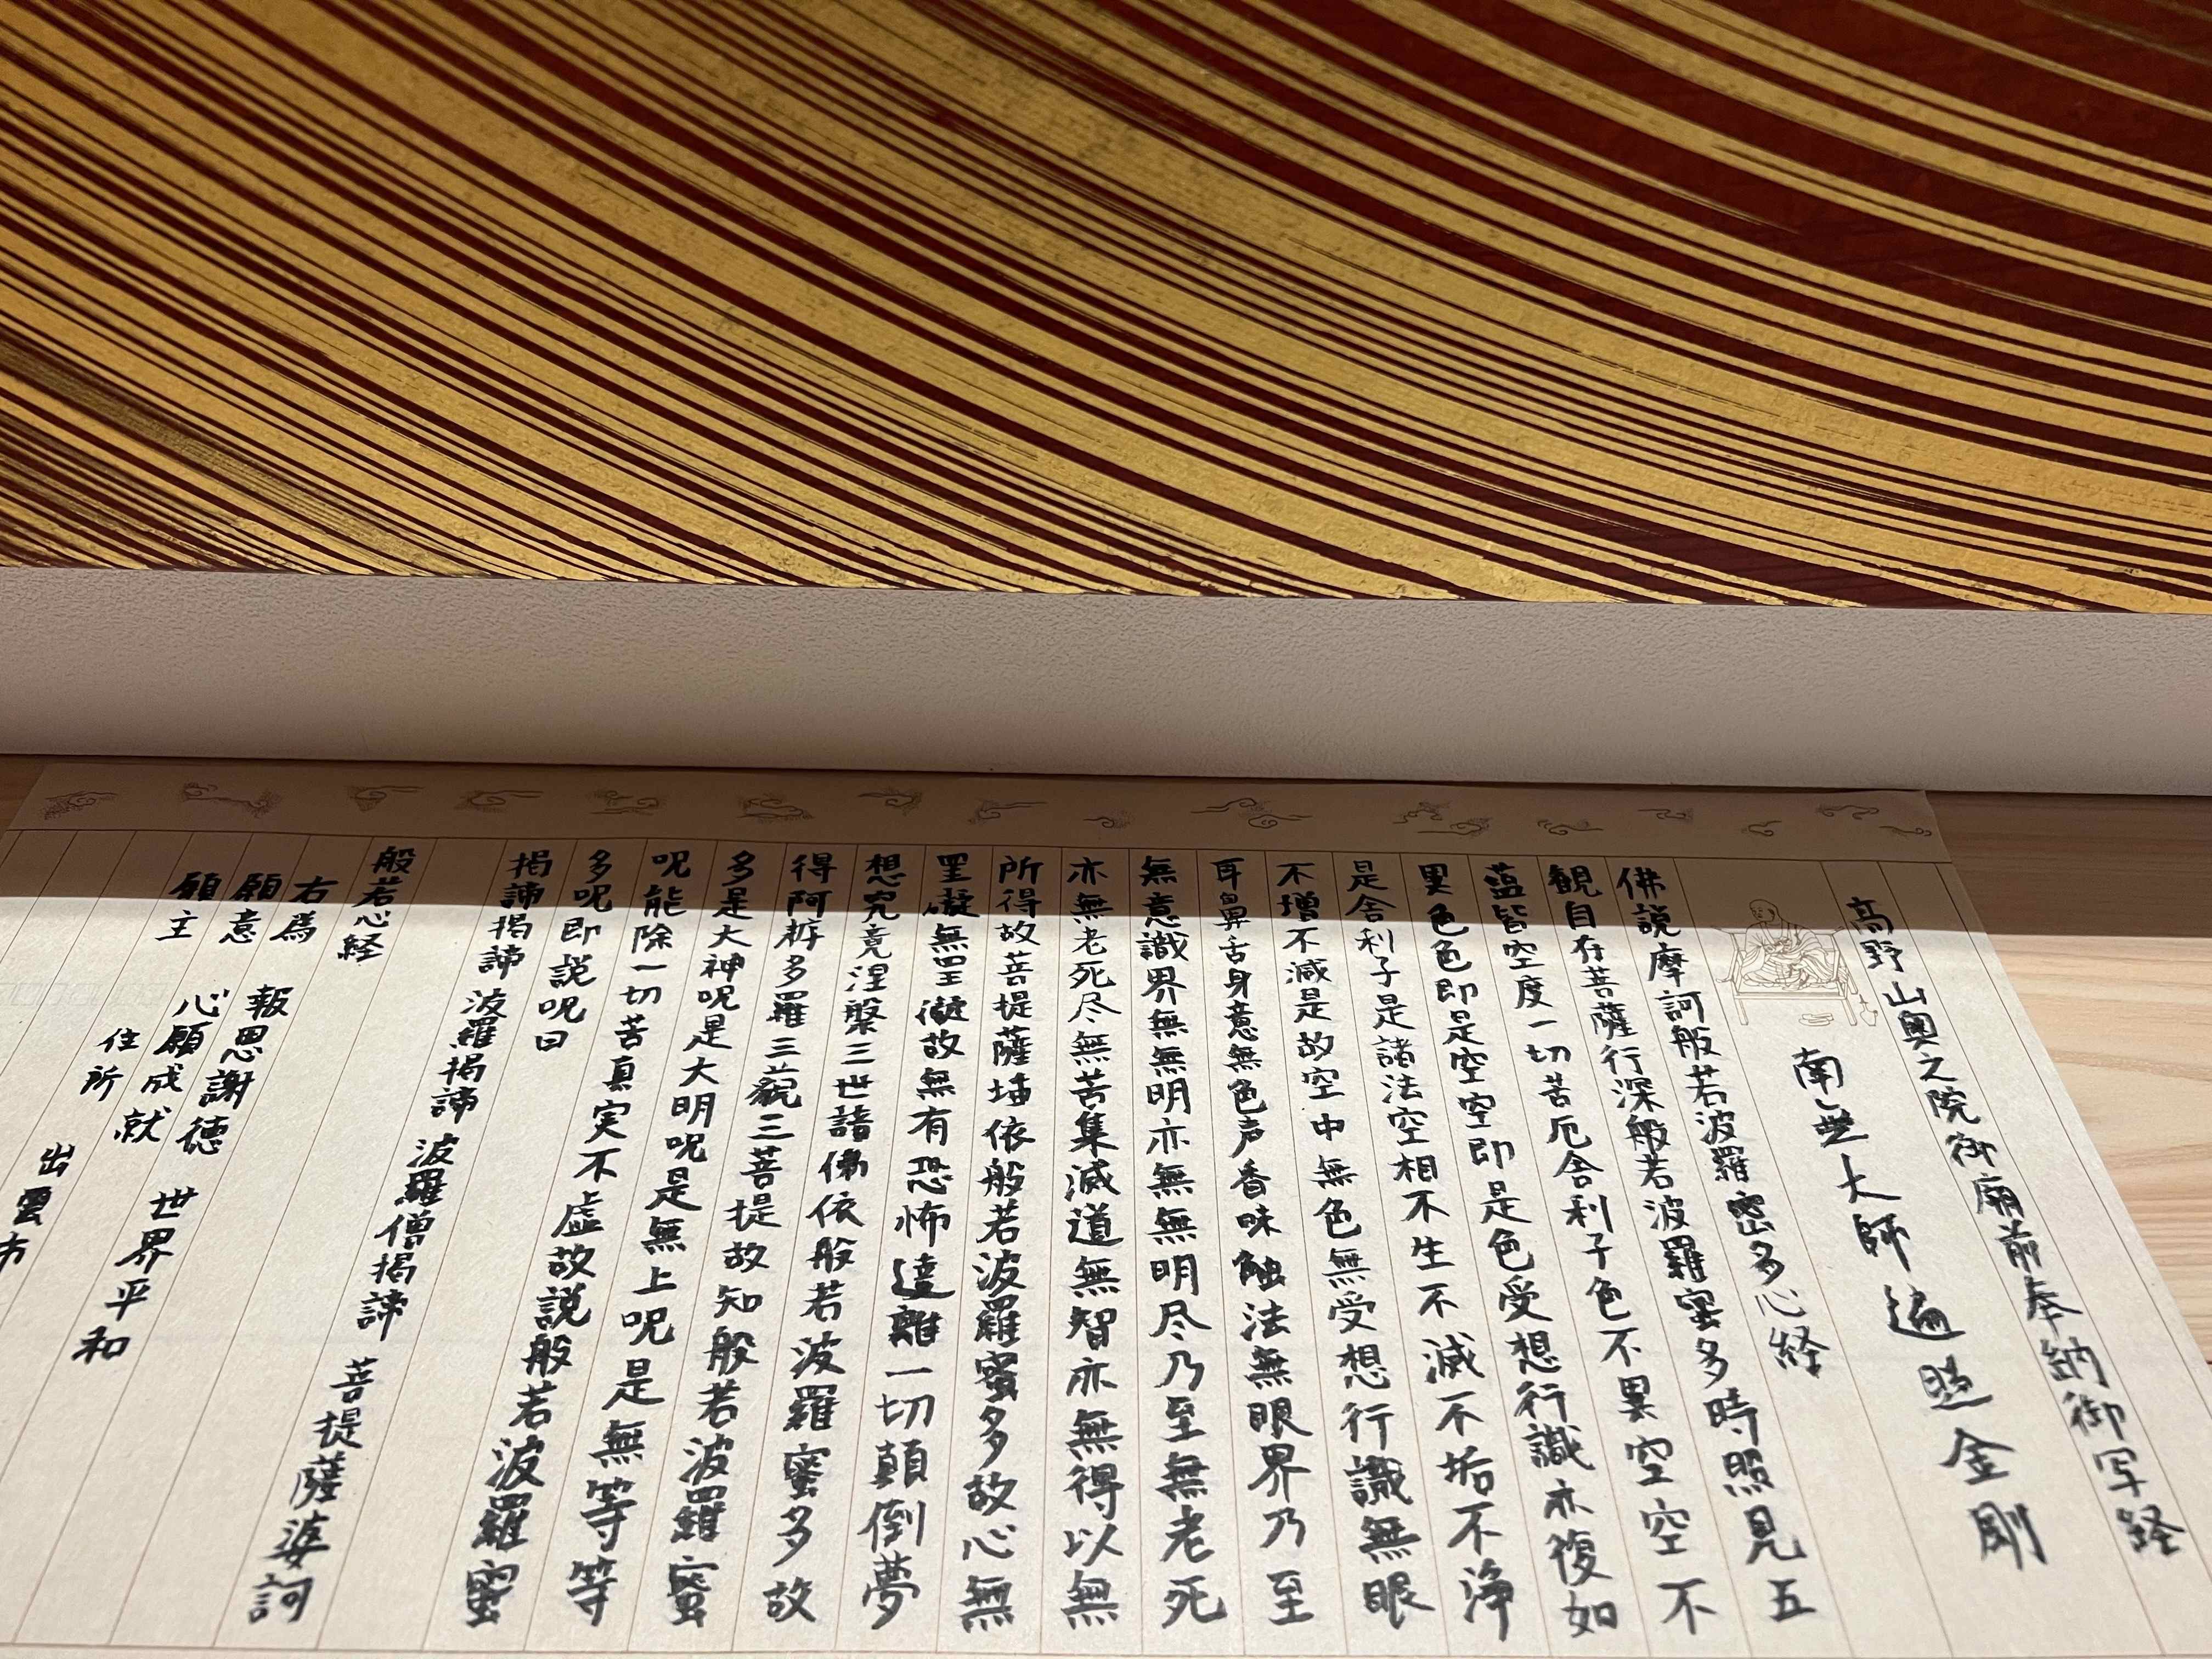 高野山奥之院御廟前奉納御写経
南無大師遍照金剛
佛説摩訶般若波羅密多心経
観自在菩薩行深般若波羅蜜多時照見五
蘊皆空度一切苦厄舎利子色不異空空不
異色色即是空空即是色受想行識亦復如
是舎利子是諸法空相不生不滅不垢不浄
不増不減是故空中無色無受想行識無眼
耳鼻舌身意無色声香味触法無眼界乃至
無意識界無無明亦無無明尽乃至無老死
亦無老死尽無苦集滅道無智亦無得以無
所得故菩提薩埵依般若波羅蜜多故心無
罣礙無罣礙故無有恐怖遠離一切顛倒夢
想究竟涅槃三世諸佛依般若波羅蜜多故
得阿耨多羅三藐三菩提故知般若波羅蜜
多是大神呪是大明呪是無上呪是無等等
呪能除一切苦真実不虚故説般若波羅蜜
多呪即説呪曰
掲諦掲諦 波羅掲諦 波羅僧掲諦 菩提薩婆訶
般若心経
右為 報恩謝徳
願意 心願成就 世界平和
願主 住所 出雲市